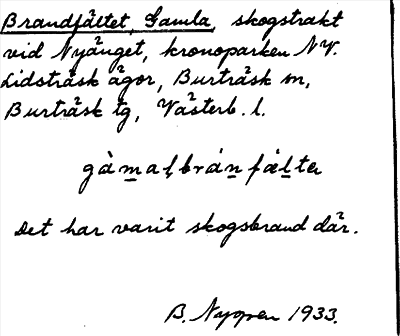 Brandfältet, Gamla, skogstrakt
vid Nyänget, kronoparken NV.
Lidsträsk ägor, Burträsk sn,
Burträsk tg, Västerb. l.
gàmalbránfälte
Det har varit skogsbrand där.
B. Nygren 1933.